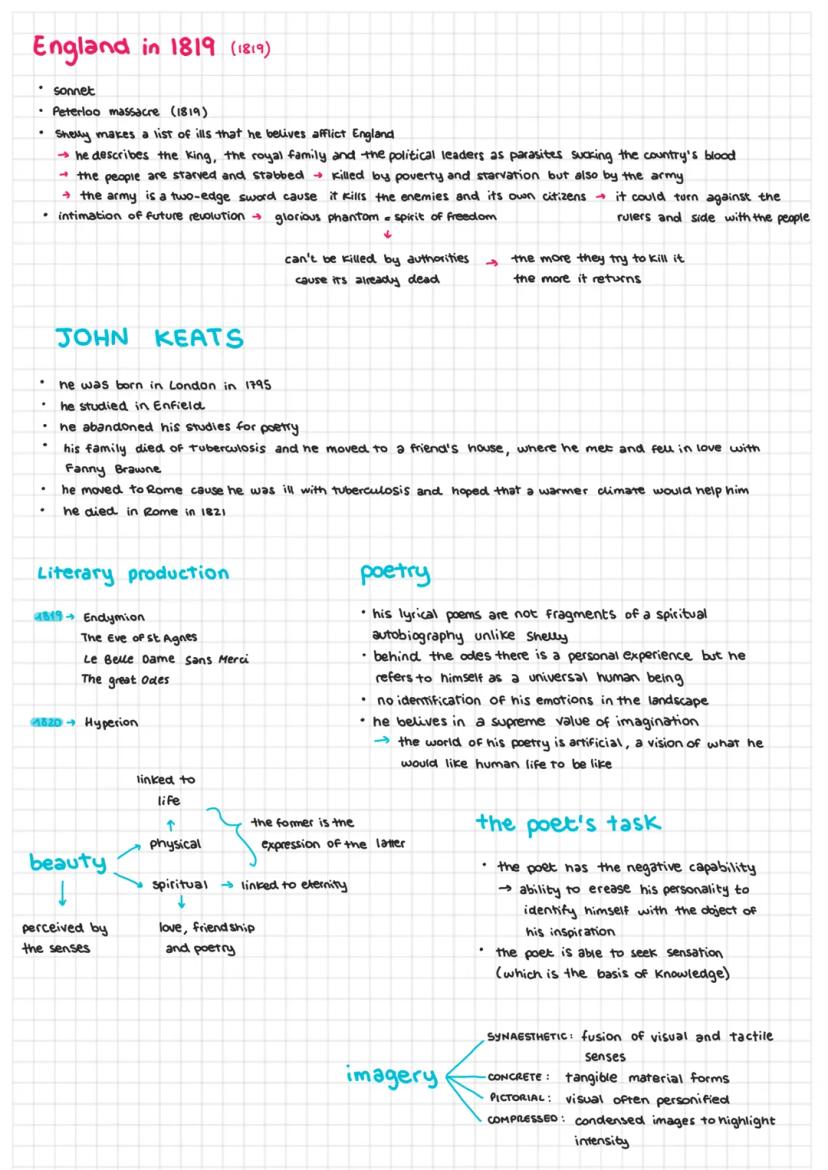 England in 1819 (1819)
• sonnet
• Peterloo massacre (1819)
• Shelly makes a list of ills that he belives afflict England
→ he describes the King, the royal family and the political leaders as parasites sucking the country's blood
→ the people are starved and stabbed → killed by poverty and starvation but also by the army
→ the army is a two-edge sword cause it kills the enemies and its own citizens → it could turn against the
rulers and side with the people
• intimation of future revolution → glorious phantom = spirit of freedom
↓
can't be killed by authorities → the more they try to kill it
cause its already dead the more it returns
JOHN KEATS
• he was born in London in 1795
• he studied in Enfield
• he abandoned his studies for poetry
• his family died of tuberculosis and he moved to a friend's house, where he met and fell in love with
Fanny Brawne
• he moved to Rome cause he was ill with tuberculosis and hoped that a warmer climate would help him
• he died in Rome in 1821
Literary production
1819 → Endymion
The Eve of St Agnes
Le Belle Dame Sans Merci
The great Odes
1820 → Hyperion
poetry
• his lyrical poems are not fragments of a spiritual
autobiography unlike Shelly
• behind the odes there is a personal experience but he
refers to himself as a universal human being
• no identification of his emotions in the landscape
• he belives in a supreme value of imagination
→ the world of his poetry is artificial, a vision of what he
would like human life to be like
linked to
life
↑
physical
the former is the
expression of the latter
beauty
spiritual → linked to eternity
↓
perceived by
the senses
love, friendship
and poetry
the poet's task
• the poet has the negative capability
→ ability to erease his personality to
identify himself with the object of
his inspiration
• the poet is able to seek sensation
(which is the basis of knowledge)
imagery
SYNAESTHETIC: fusion of visual and tactile
senses
CONCRETE: tangible material forms
PICTORIAL: visual often personified
COMPRESSED: condensed images to highlight
intensity